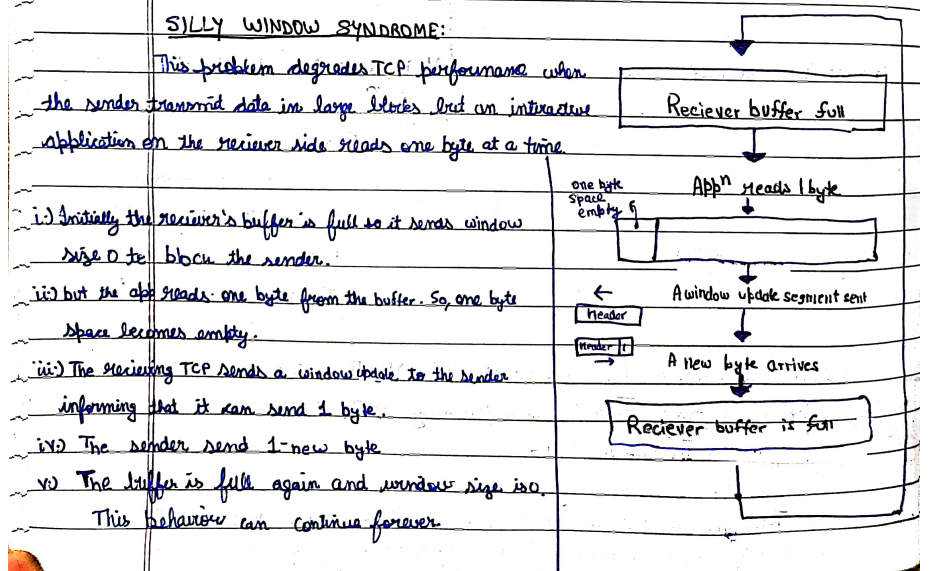 SILLY WINDOW SYNDROME:
This problem degrades TCP performance when
the sender transmid data in large blocks but an interactive
application on the reciever side reads one byte at a time.
i.) Initially the reciever's buffer is full so it sends window
size 0 to block the sender.
ii.) but the app reads one byte from the buffer. So, one byte
space becomes empty.
iii.) The recieving TCP sends a window update to the sender
informing that it can send 1 byte.
iv.) The sender send 1-new byte
v.) The buffer is full again and window size is 0.
This behaviour can continue forever
Reciever buffer full
Appⁿ reads 1 byte
one byte
space
empty
A window update segment sent
Header
Header 1
A new byte arrives
Reciever buffer is full